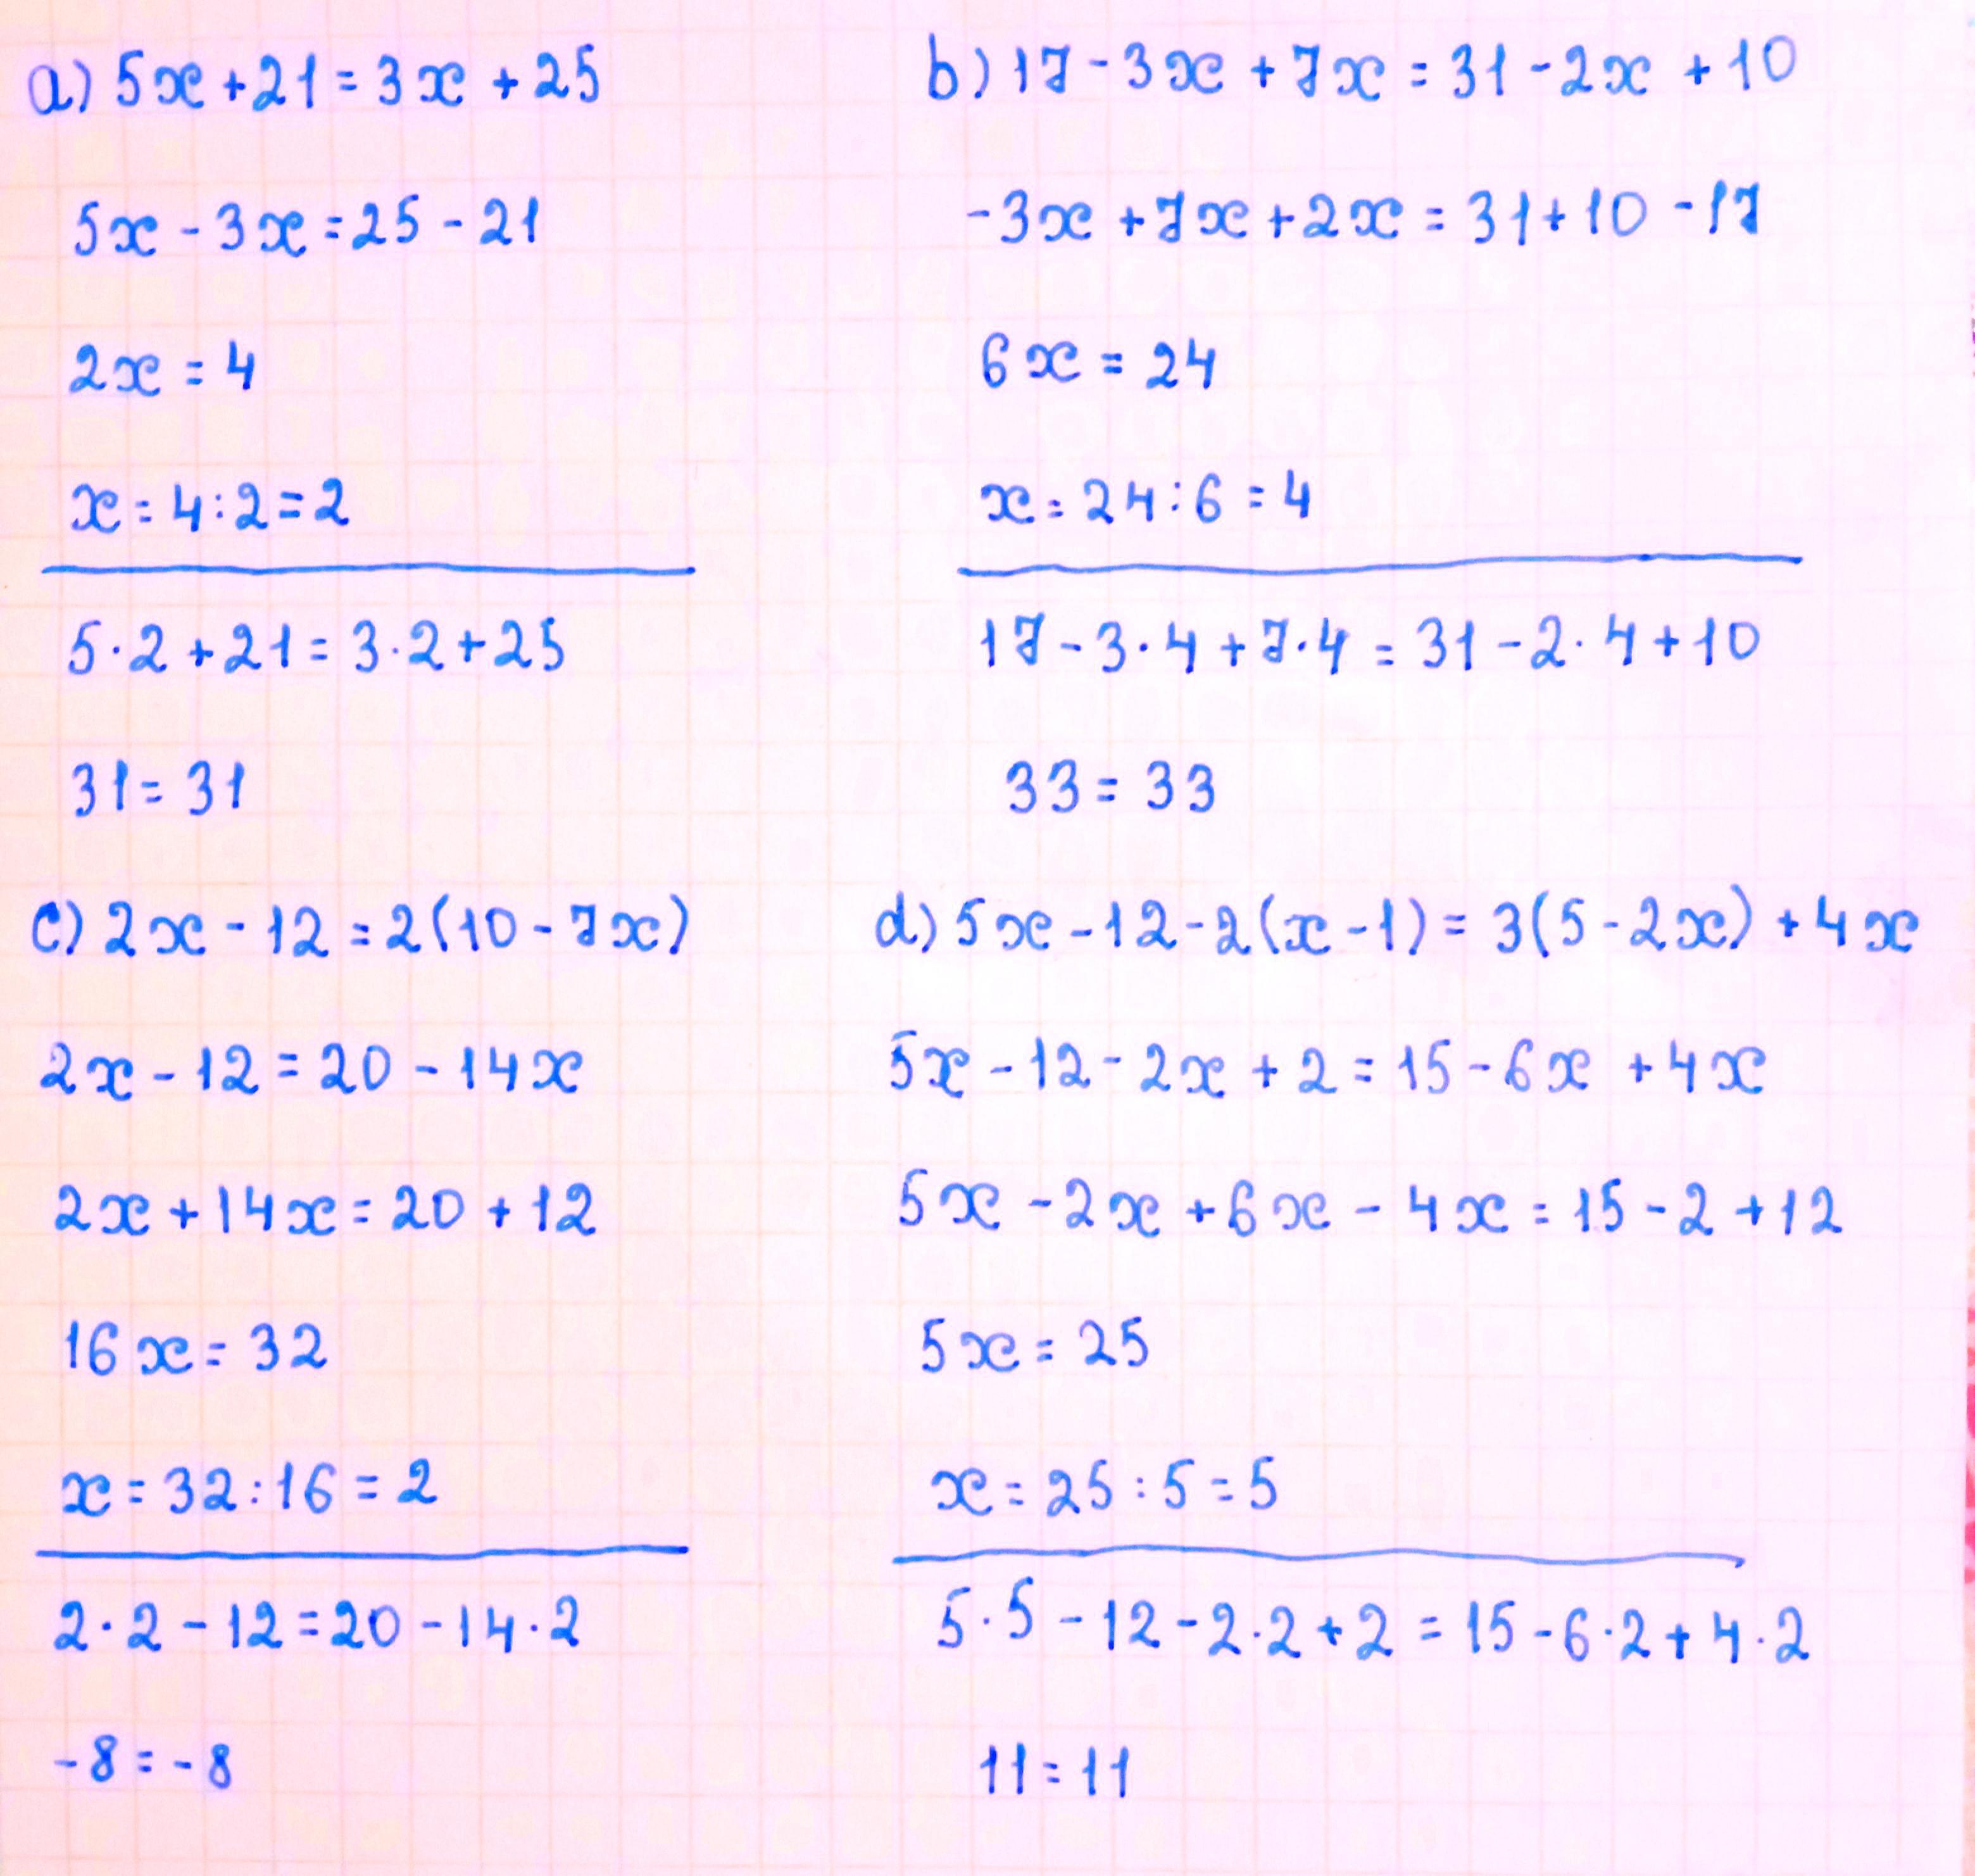 a) 5x + 21 = 3x + 25
5x - 3x = 25 - 21
2x = 4
x = 4 : 2 = 2
5 · 2 + 21 = 3 · 2 + 25
31 = 31
b) 17 - 3x + 7x = 31 - 2x + 10
-3x + 7x + 2x = 31 + 10 - 17
6x = 24
x = 24 : 6 = 4
17 - 3 · 4 + 7 · 4 = 31 - 2 · 4 + 10
33 = 33
c) 2x - 12 = 2(10 - 7x)
2x - 12 = 20 - 14x
2x + 14x = 20 + 12
16x = 32
x = 32 : 16 = 2
2 · 2 - 12 = 20 - 14 · 2
-8 = -8
d) 5x - 12 - 2(x - 1) = 3(5 - 2x) + 4x
5x - 12 - 2x + 2 = 15 - 6x + 4x
5x - 2x + 6x - 4x = 15 - 2 + 12
5x = 25
x = 25 : 5 = 5
5 · 5 - 12 - 2 · 2 + 2 = 15 - 6 · 2 + 4 · 2
11 = 11